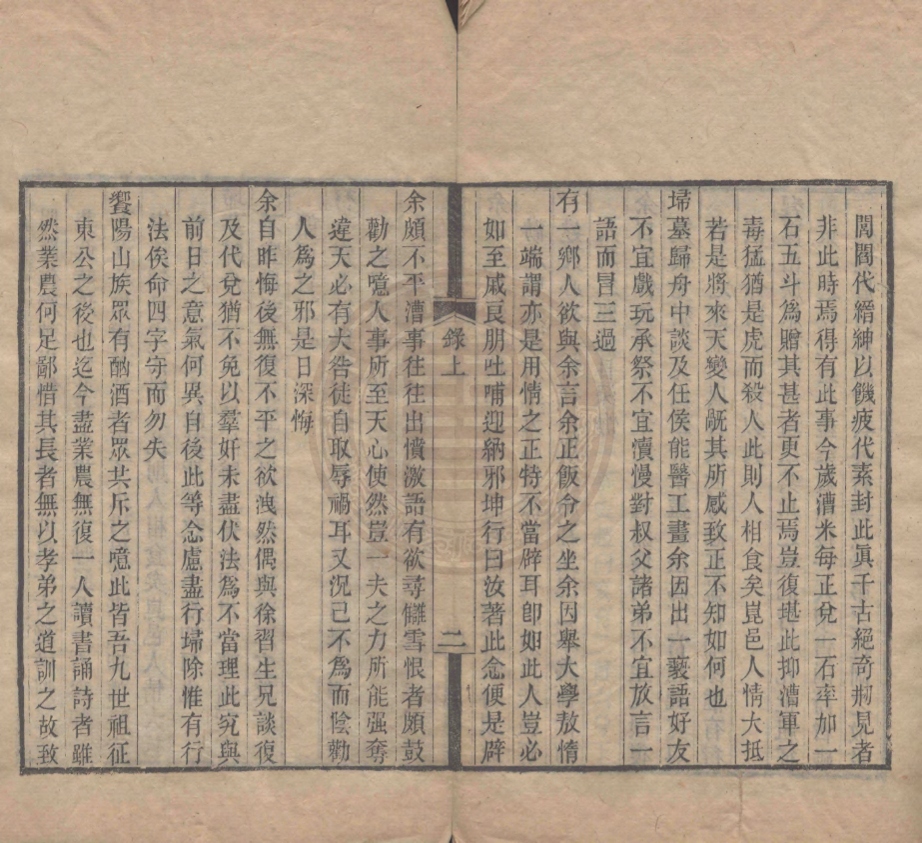 閭閻代縉紳以饑疲代素封此眞千古絕奇刱見者
非此時焉得有此事今歲漕米每正兌一石率加一
石五斗爲贈其甚者更不止焉豈復堪此抑漕軍之
毒猛猶是虎而殺人此則人相食矣崑邑人情大抵
若是將來天變人厭其所感致正不知如何也
埽墓歸舟中談及任侯能醫工畫余因出一褻語好友
不宜戲玩承祭不宜瀆慢對叔父諸弟不宜放言一
語而冒三過
有一鄉人欲與余言余正飯令之坐余因舉大學敖惰
一端謂亦是用情之正特不當辟耳卽如此人豈必
如至戚良朋吐哺迎納邪坤行曰汝著此念便是辟
錄上
二
余頗不平漕事往往出憤激語有欲尋讎雪恨者頗鼓
勸之噫人事所至天心使然豈一夫之力所能强奪
違天必有大咎徒自取辱禍耳又況己不爲而陰勸
人爲之邪是日深悔
余自昨悔後無復不平之欲洩然偶與徐習生兄談復
及代兌猶不免以羣奸未盡伏法爲不當理此究與
前日之意氣何異自後此等念慮盡行埽除惟有行
法俟命四字守而勿失
饗陽山族眾有酗酒者眾共斥之噫此皆吾九世祖征
東公之後也迄今盡業農無復一人讀書誦詩者雖
然業農何足鄙惜其長者無以孝弟之道訓之故致